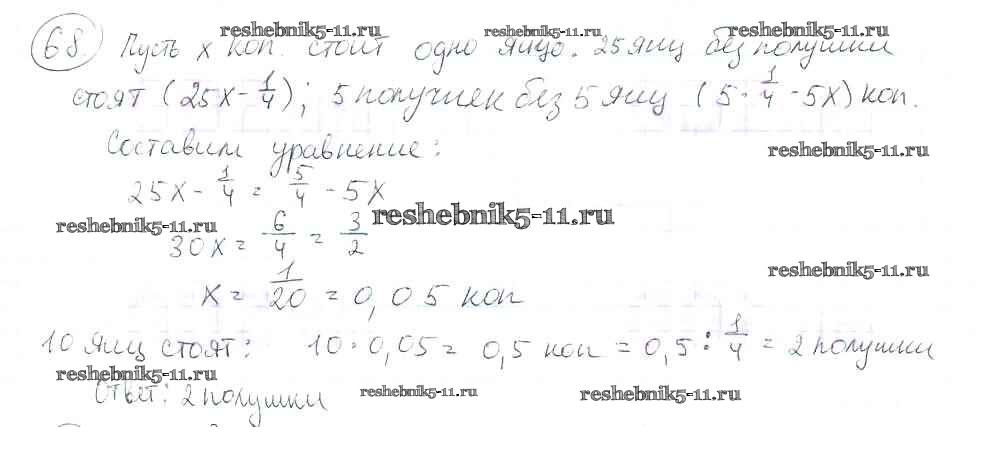 reshebnik5-11.ru reshebnik5-11.ru reshebnik5-11.ru
68. Пусть x коп. стоит одно яйцо. 25 яиц без полушки
стоят (25x - 1/4); 5 полушек без 5 яиц (5 · 1/4 - 5x) коп.
Составим уравнение: reshebnik5-11.ru
25x - 1/4 = 5/4 - 5x
reshebnik5-11.ru reshebnik5-11.ru
30x = 6/4 = 3/2
reshebnik5-11.ru
x = 1/20 = 0,05 коп
10 яиц стоят: 10 · 0,05 = 0,5 коп = 0,5 : 1/4 = 2 полушки
reshebnik5-11.ru
Ответ: 2 полушки reshebnik5-11.ru reshebnik5-11.ru